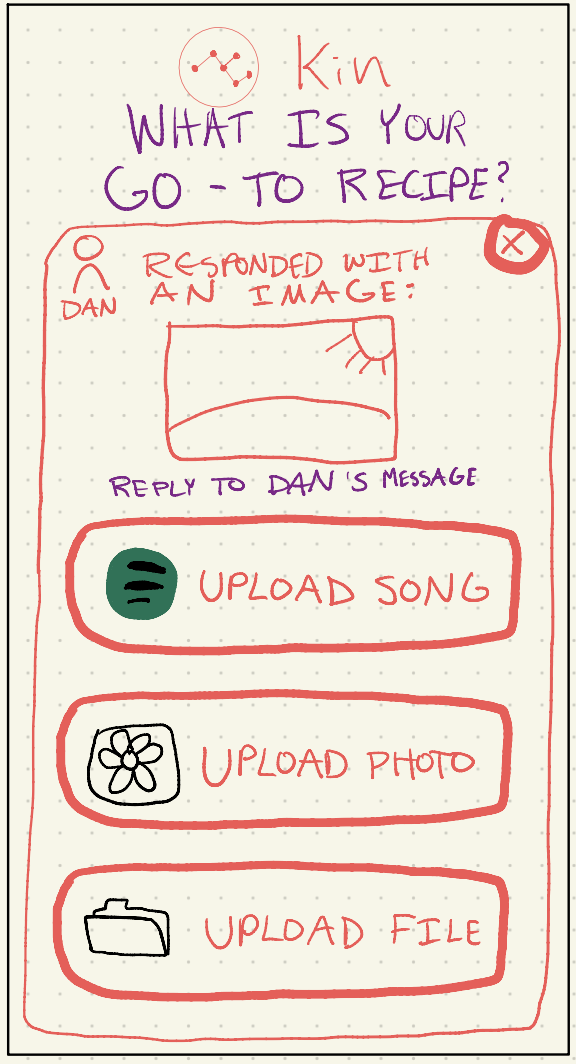 Kin
WHAT IS YOUR
GO-TO RECIPE?
RESPONDED WITH
AN IMAGE:
DAN
REPLY TO DAN'S MESSAGE
UPLOAD SONG
UPLOAD PHOTO
UPLOAD FILE